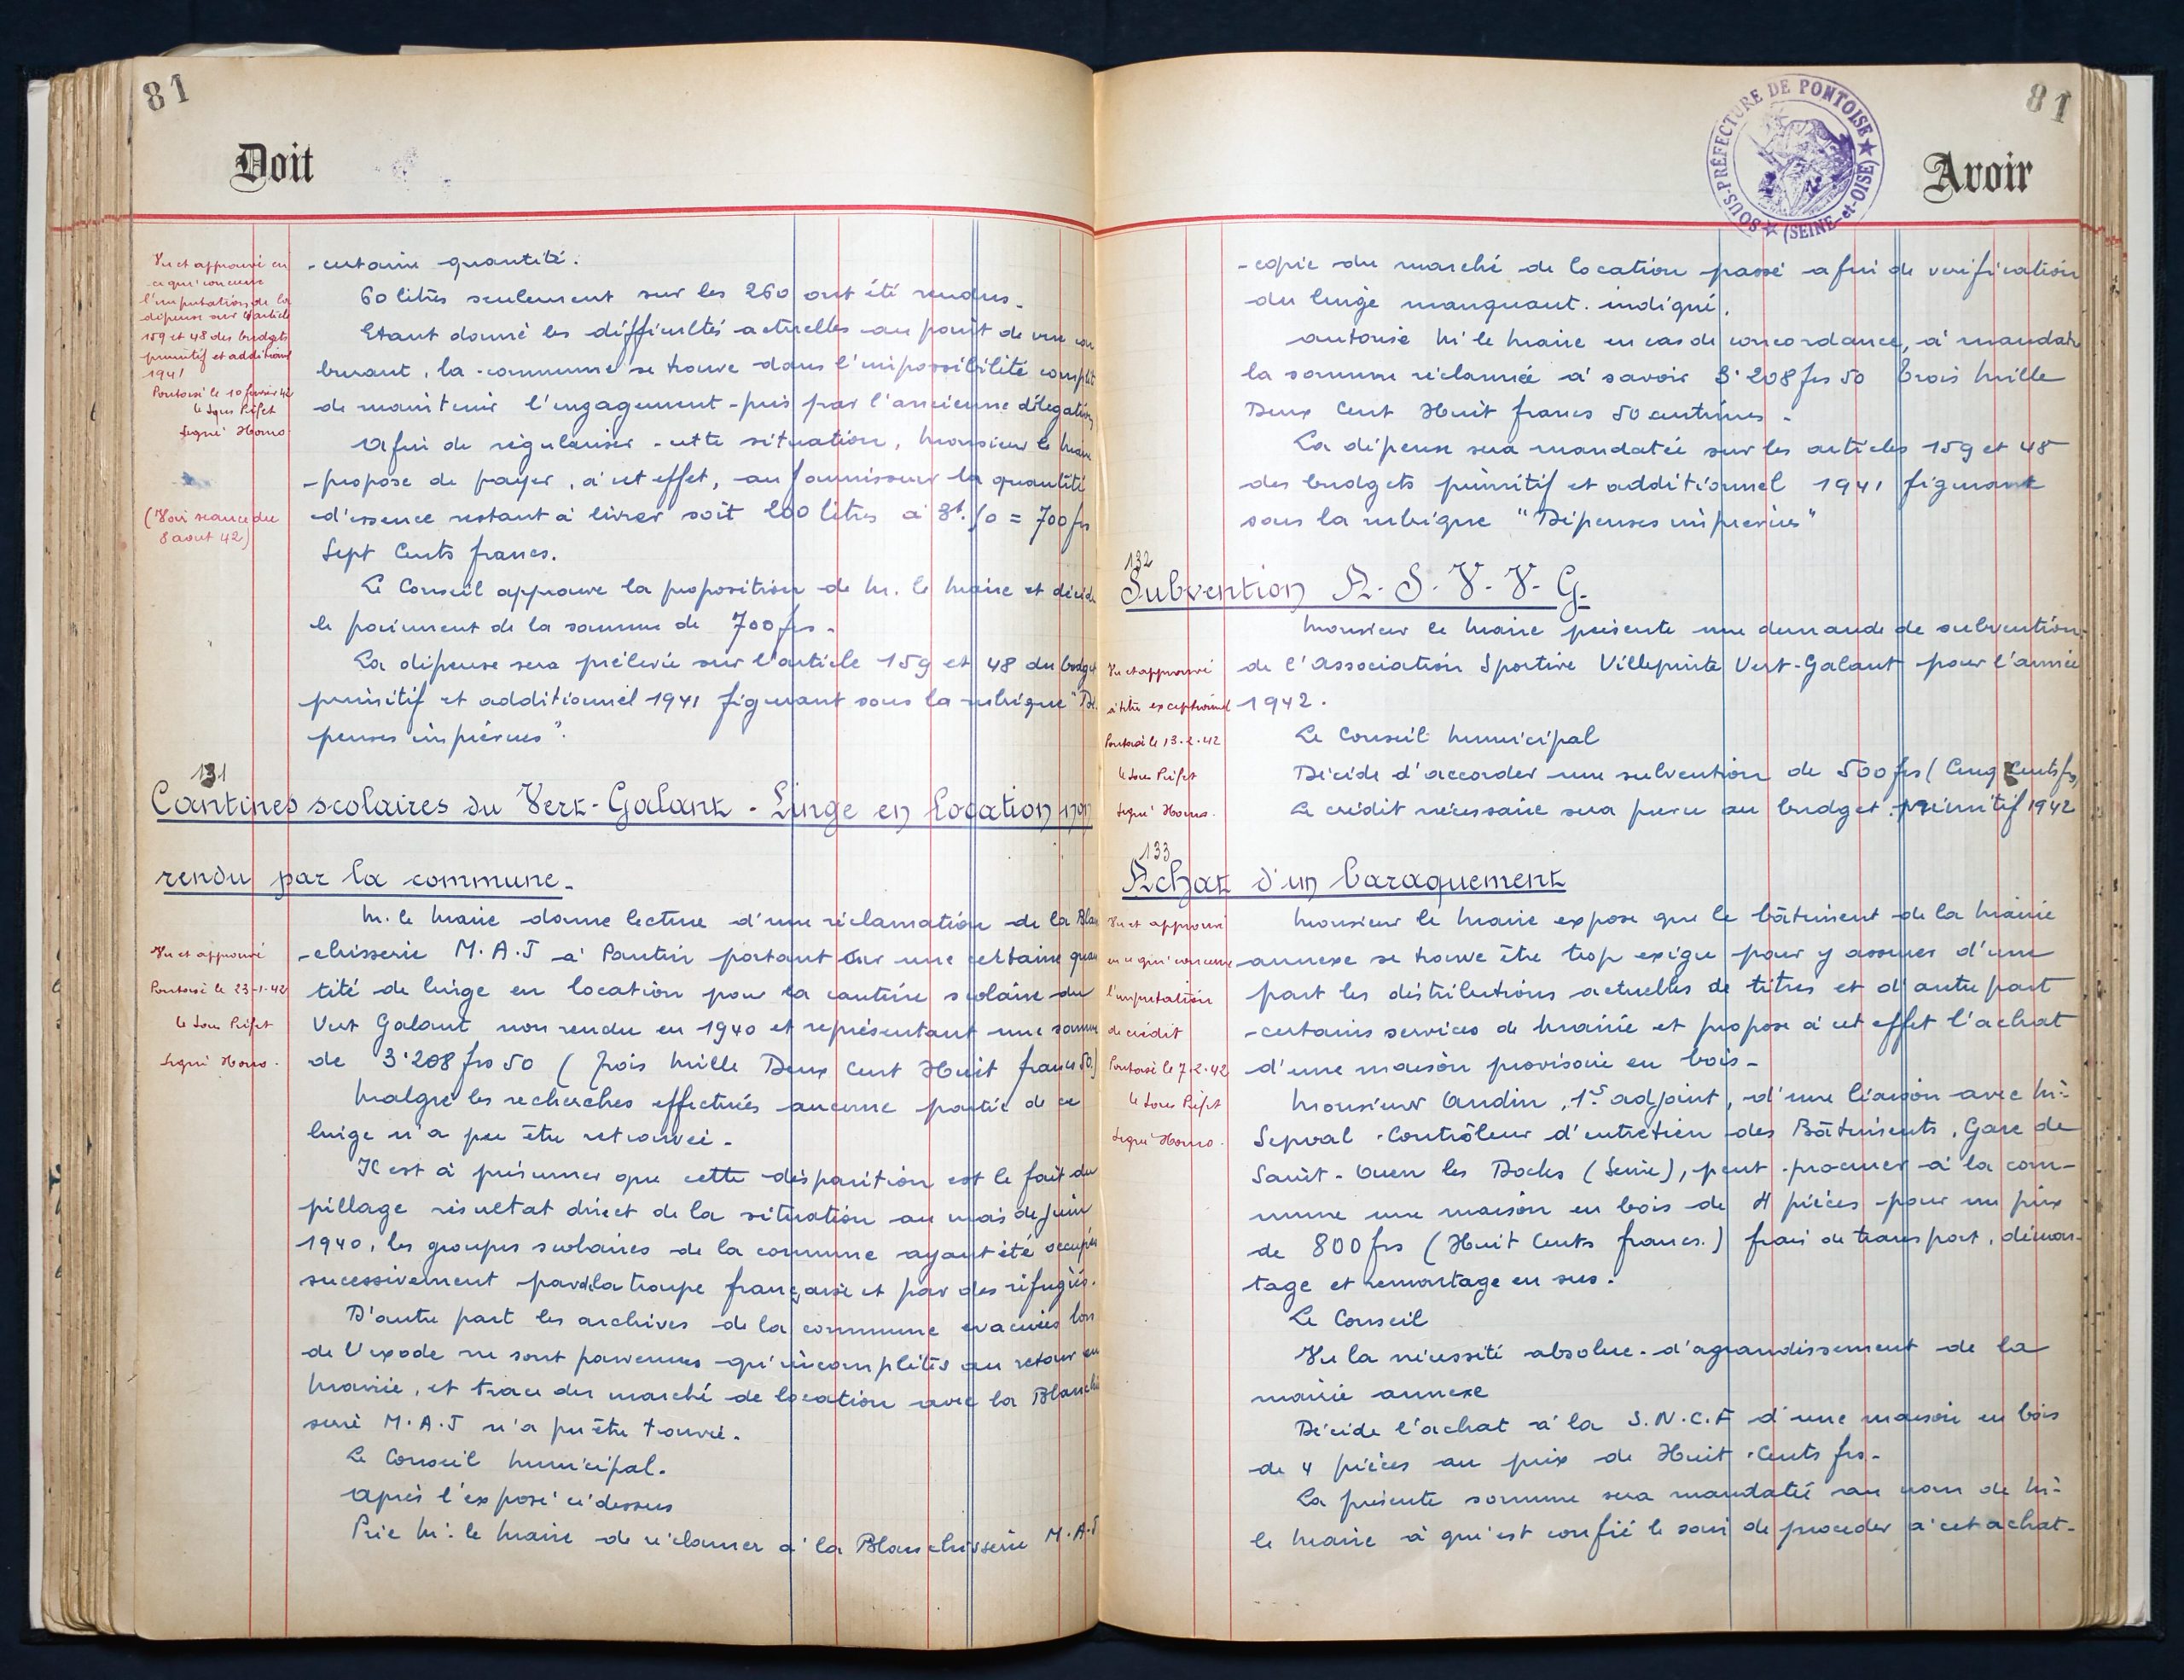 81
Doit
Vu et approuvé en
ce qui concerne
l'imputation de la
dépense sur l'article
159 et 48 des budgets
primitif et additionnel
1941
Pontoise le 10 février 42
le Sous Préfet
Signé Homo
(Voir séance du
8 aout 42)
-certaine quantité.
60 litres seulement sur les 260 ont été rendus.
Etant donné les difficultés actuelles au point de vue car
burant, la commune se trouve dans l'impossibilité complète
de maintenir l'engagement pris par l'ancienne délégation
Afin de régulariser cette situation, Monsieur le Maire
propose de payer, à cet effet, au fournisseur la quantité
d'essence restant à livrer soit 200 litres à 3f.50 = 700 frs
Sept Cents francs.
Le Conseil approuve la proposition de M. le Maire et décide
le paiement de la somme de 700 frs.
La dépense sera prélevée sur l'article 159 et 48 du budget
primitif et additionnel 1941 figurant sous la rubrique "Dé.
penses imprévues".
131
Cantines scolaires du Vert-Galant - Linge en location non
rendu par la commune.
Vu et approuvé
Pontoise le 23-1-42
le Sous Préfet
Signé Homo.
M. le Maire donne lecture d'une réclamation de la Blan
-chisserie M.A.J à Pantin portant sur une certaine quan
tité de linge en location pour la cantine scolaire du
Vert Galant non rendu en 1940 et représentant une somme
de 3'208 frs 50 (Trois Mille Deux Cent Huit francs 50.)
Malgré les recherches effectuées aucune partie de ce
linge n'a pu être retrouvée.
Il est à présumer que cette disparition est le fait du
pillage résultat direct de la situation au mois de juin
1940, les groupes scolaires de la commune ayant été occupés
sucessivement par la troupe française et par des réfugiés.
D'autre part les archives de la commune evacuées lors
de l'exode ne sont parvenues qu'incomplètes au retour en
Mairie, et trace du marché de location avec la Blanchis
serie M.A.J n'a pu être trouvée.
Le Conseil Municipal.
après l'exposé ci'dessus
Prie M. le Maire de réclamer à la Blanchisserie M.A.J
81
Avoir
SOUS-PRÉFECTURE DE PONTOISE ★ (SEINE-et-OISE) ★
-copie du marché de location passé afin de verification
du linge manquant indiqué.
autorise M. le Maire en cas de concordance, à mandater
la somme réclamée à savoir 3'208 frs 50 Trois Mille
Deux Cent Huit francs 50 centimes.
La dépense sera mandatée sur les articles 159 et 48
des budgets primitif et additionnel 1941 figurant
sous la rubrique "Dépenses imprévues"
132
Subvention A.S.V.V.G.
Vu et approuvé
à titre exceptionnel
Pontoise le 13.2.42
le Sous Préfet
Signé Homo.
Monsieur le Maire présente une demande de subvention
de l'Association Sportive Villepinte Vert-Galant pour l'année
1942.
Le Conseil Municipal
Décide d'accorder une subvention de 500 frs (Cinq Cents frs)
Le crédit nécessaire sera prévu au budget primitif 1942
133
Achat d'un baraquement
Vu et approuvé
en ce qui concerne
l'imputation
de crédit
Pontoise le 7.2.42
le Sous Préfet
Signé Homo.
Monsieur le Maire expose que le bâtiment de la Mairie
annexe se trouve être trop exigu pour y assurer d'une
part les distributions actuelles de titres et d'autre part
-certains services de Mairie et propose à cet effet l'achat
d'une maison provisoire en bois.
Monsieur Audin, 1er adjoint, d'une liaison avec M.
Sepval Contrôleur d'entretien des Bâtiments, Gare de
Saint-Ouen les Docks (Seine), peut procurer à la com-
mune une maison en bois de 4 pièces pour un prix
de 800 frs (Huit Cents francs.) frais de transport, démon-
tage et remontage en sus.
Le Conseil
Vu la nécessité absolue d'agrandissement de la
mairie annexe
Décide l'achat à la S.N.C.F d'une maison en bois
de 4 pièces au prix de Huit Cents frs.
La présente somme sera mandatée au nom de M.
le Maire à qui est confié le soin de proceder à cet achat.